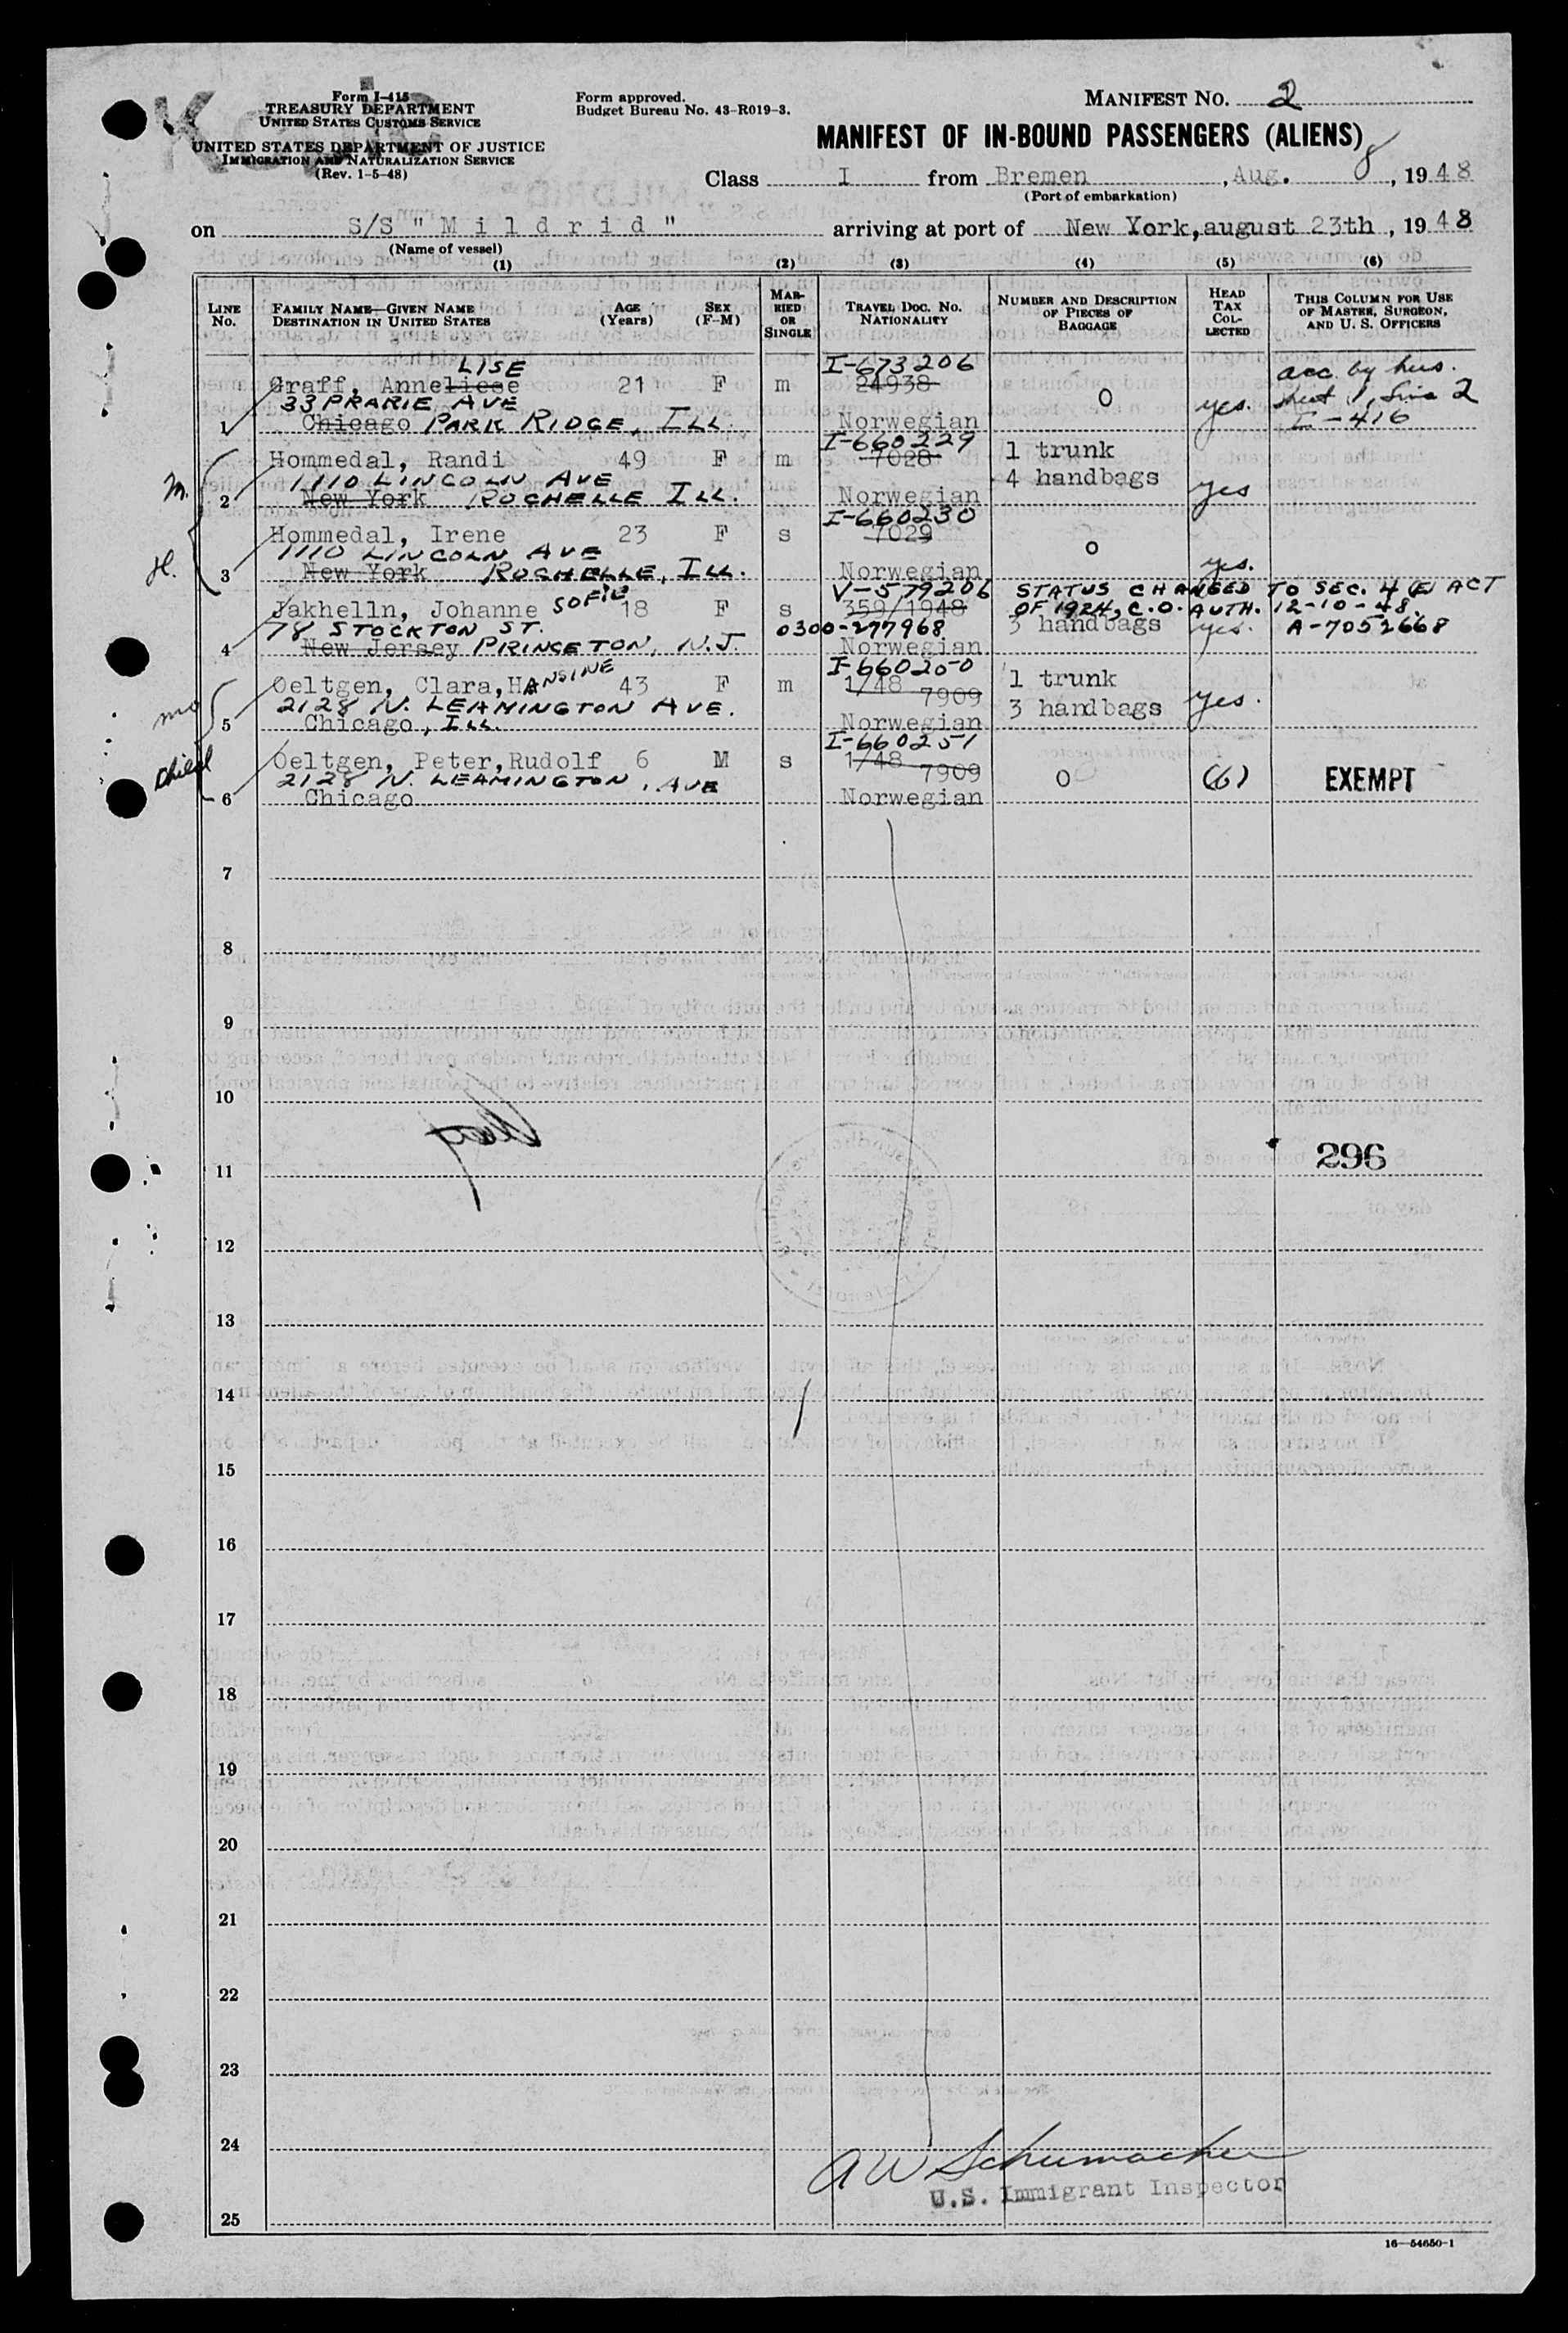 Form I-415
TREASURY DEPARTMENT
UNITED STATES CUSTOMS SERVICE
UNITED STATES DEPARTMENT OF JUSTICE
IMMIGRATION AND NATURALIZATION SERVICE
(Rev. 1-5-48)
Form approved.
Budget Bureau No. 43-R019-3.
MANIFEST NO. 2
MANIFEST OF IN-BOUND PASSENGERS (ALIENS)
Class I from Bremen, Aug. 8, 1948
(Port of embarkation)
on S/S "Mildrid" arriving at port of New York, august 23th, 1948
(Name of vessel)
(1) (2) (3) (4) (5) (6)
LINE No. FAMILY NAME—GIVEN NAME DESTINATION IN UNITED STATES AGE (Years) SEX (F-M) MARRIED OR SINGLE TRAVEL DOC. NO. NATIONALITY NUMBER AND DESCRIPTION OF PIECES OF BAGGAGE HEAD TAX COLLECTED THIS COLUMN FOR USE OF MASTER, SURGEON, AND U. S. OFFICERS
LISE I-673206 acc. by hus.
Graff, Anneliese 21 F m 24938 0 yes. sheet 1, line 2
33 PRARIE AVE I-416
1 Chicago PARK RIDGE, ILL. Norwegian
I-660229
Hommedal, Randi 49 F m 7028 1 trunk
1110 LINCOLN AVE 4 handbags yes
2 New York ROCHELLE ILL. Norwegian
M.
I-660230
Hommedal, Irene 23 F s 7029 0
1110 LINCOLN AVE yes.
3 New York ROCHELLE, ILL. Norwegian
H.
V-579206 STATUS CHANGED TO SEC. 4(E) ACT
Jakhelln, Johanne SOFIE 18 F s 359/1948 OF 1924, C.O. AUTH. 12-10-48.
78 STOCKTON ST. 0300-277968 3 handbags yes. A-7052668
4 New Jersey PRINCETON, N.J. Norwegian
I-660250
Oeltgen, Clara, HANSINE 43 F m 1/48 7909 1 trunk
2128 N. LEAMINGTON AVE. 3 handbags yes.
5 Chicago, ILL. Norwegian
mo
I-660251
Oeltgen, Peter, Rudolf 6 M s 1/48 7909 0 (6) EXEMPT
2128 N. LEAMINGTON, AVE
6 Chicago Norwegian
child
7
8
9
10
11 296
12
13
14
15
16
17
18
19
20
21
22
23
24
A W Schumacher
U.S. Immigrant Inspector
25
16—54650-1